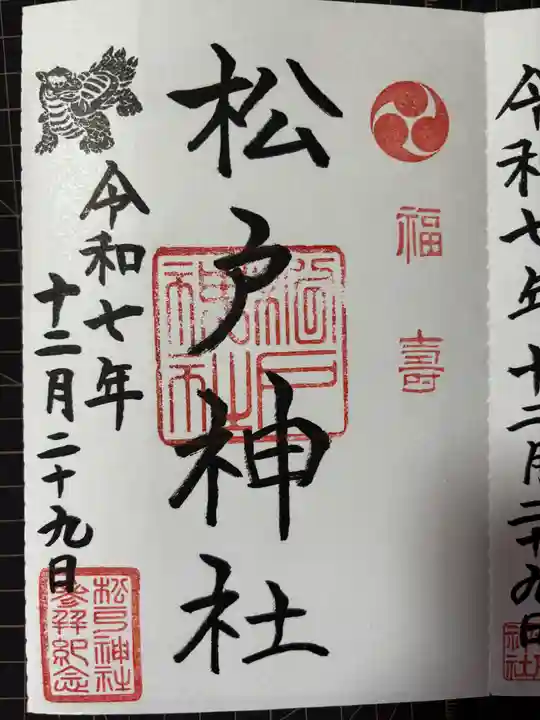 福壽
松戸神社
松戸神社
令和七年
十二月二十九日
松戸神社
参拝紀念
令和七年十二月二十九日